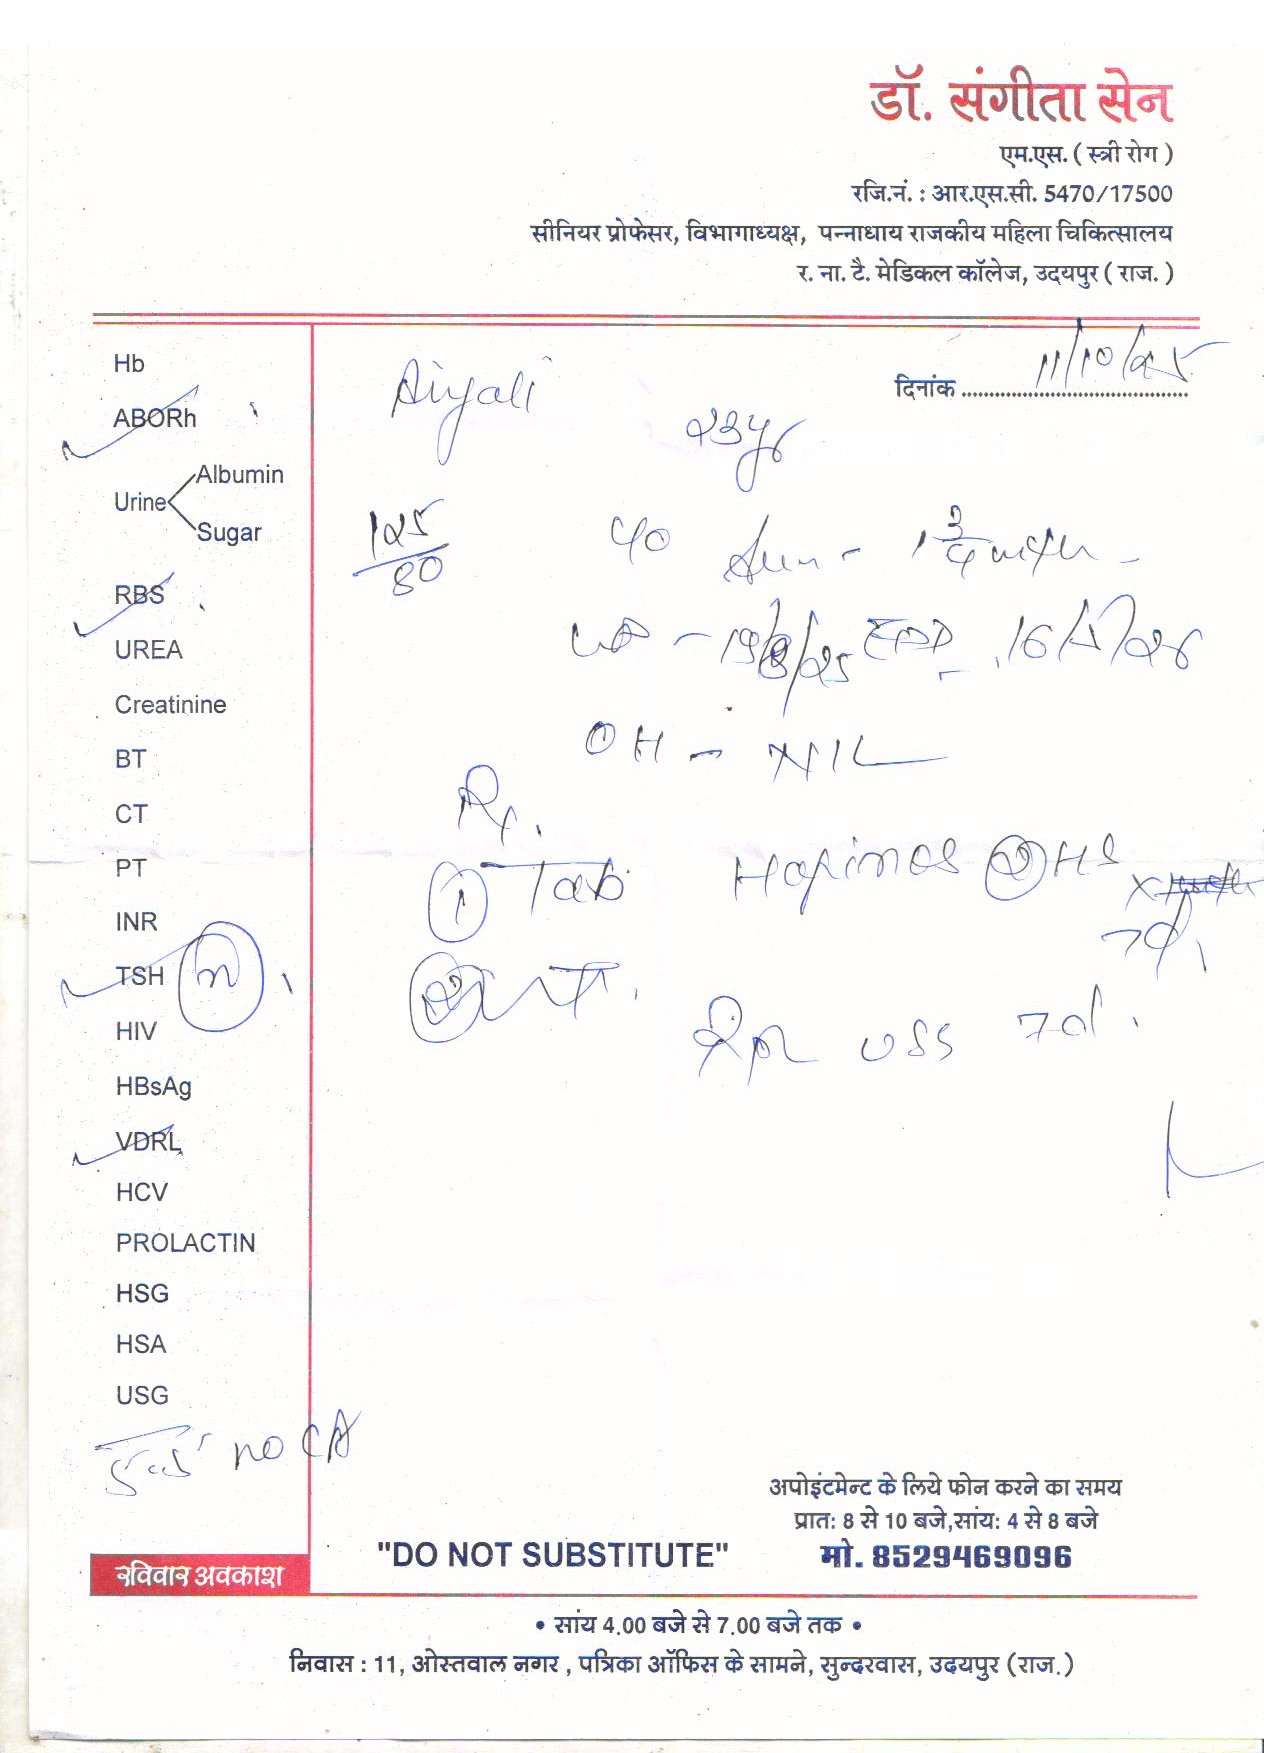 डॉ. संगीता सेन
एम.एस. ( स्त्री रोग )
रजि.नं. : आर.एस.सी. 5470/17500
सीनियर प्रोफेसर, विभागाध्यक्ष, पन्नाधाय राजकीय महिला चिकित्सालय
र. ना. टै. मेडिकल कॉलेज, उदयपुर ( राज. )
दिनांक 11/10/25
Hb
ABORh
23yr
Urine
Albumin
Sugar
125/80
RBS
UREA
19/8/25 EDD 16/5/26
Creatinine
OH - NIL
BT
Rx.
CT
PT
① Tab HS x
7d.
INR
TSH
②
HIV
USS 7d.
HBsAg
VDRL
HCV
PROLACTIN
HSG
HSA
USG
no CA
अपोइंटमेन्ट के लिये फोन करने का समय
प्रात: 8 से 10 बजे,सांय: 4 से 8 बजे
"DO NOT SUBSTITUTE"
मो. 8529469096
रविवार अवकाश
• सांय 4.00 बजे से 7.00 बजे तक •
निवास : 11, ओस्तवाल नगर , पत्रिका ऑफिस के सामने, सुन्दरवास, उदयपुर (राज.)